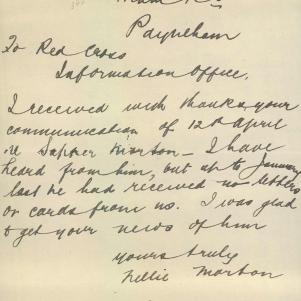 Payneham
To Red Cross
Information Office.
I received with thanks your
communication of 12th April
re Sapper Morton – I have
heard from him, but up to January
last he had received no letters
or cards from us. I was glad
to get your news of him
yours truly
Nellie Morton